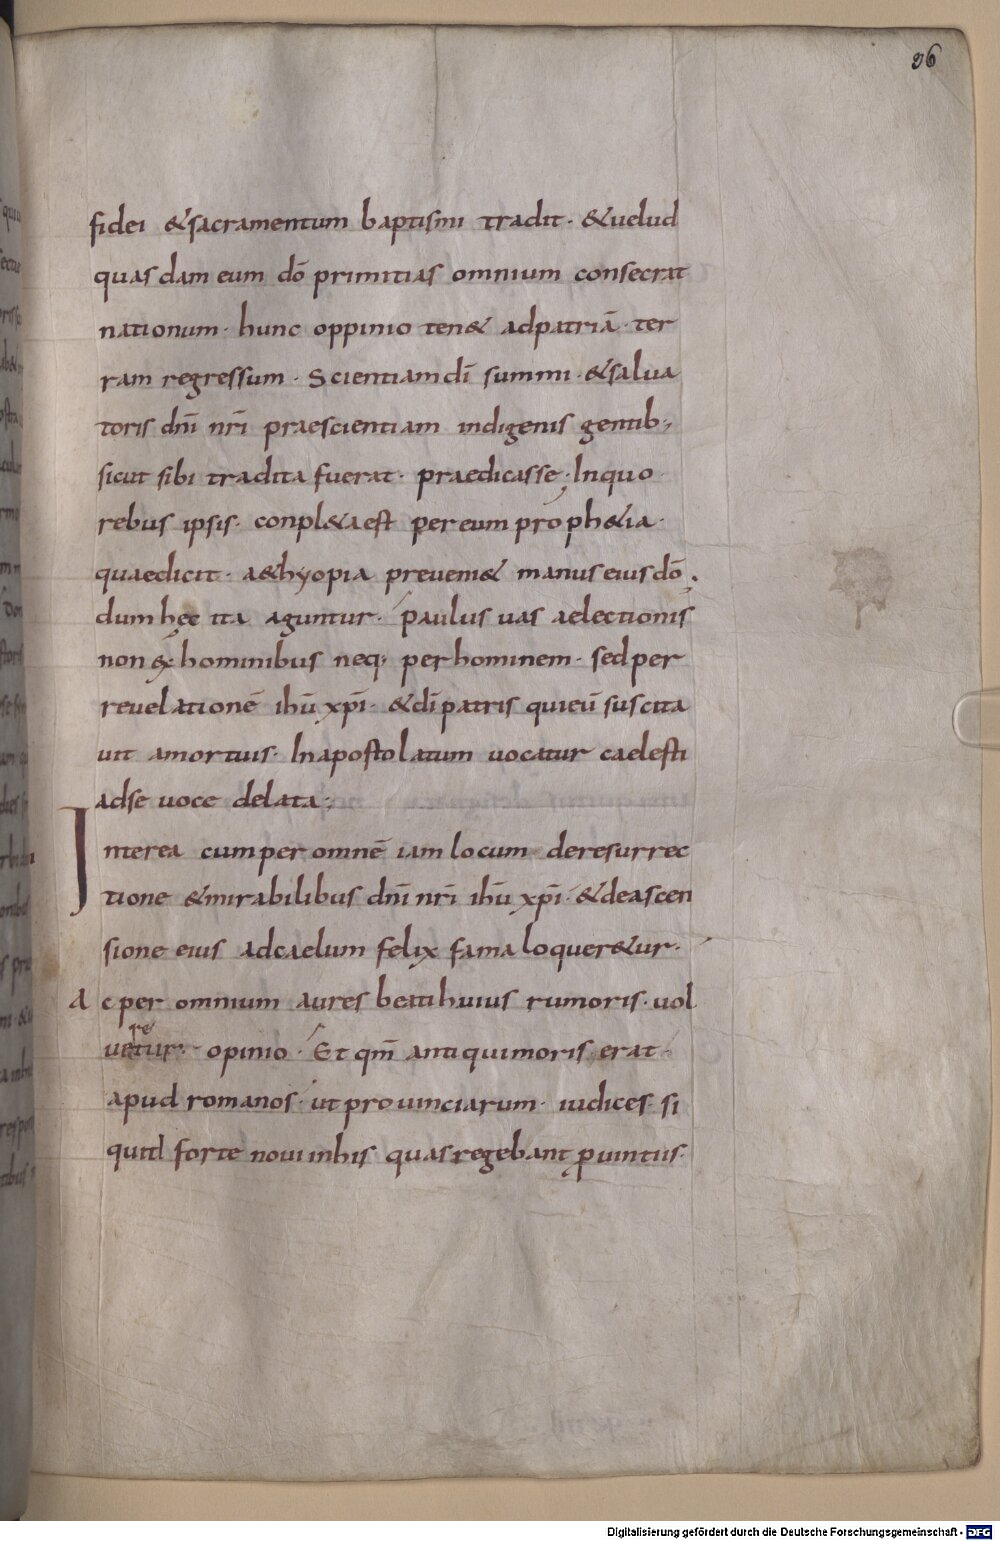 36
fidei &sacramentum baptismi tradit · &uelud
quasdam eum dō primitias omnium consecrat
nationum · hunc oppinio ten& adpatriā · ter
ram regressum · Scientiam dī summi · &salua
toris dnī nrī praescientiam indigenis gentib;
sicut sibi tradita fuerat · praedicasse · Inquo
rebus ipsis · conpl&aest per eum proph&ia ·
quaedicit · a&hyopia preueni& manus eius dō .
dum hęc ita aguntur · paulus uas aelectionis
non ex hominibus neq; per hominem · sed per
reuelationē ihū xpī · &dī patris qui eū suscita
uit amortuis · In apostolatum uocatur caelesti
adse uoce delata ;
Interea cum per omnē iam locum deresurrec
tione &mirabilibus dnī nrī ihū xpī · &deascen
sione eius adcaelum felix fama loquer&ur ·
Ac per omnium aures beati huius rumoris · uol
re
uetur · opinio · Et qm̄ antiqui moris erat ·
apud romanos · ut prouinciarum · iudices · si
quid forte noui inhis quas regebant ꝓuintiis ·
Digitalisierung gefördert durch die Deutsche Forschungsgemeinschaft - DFG